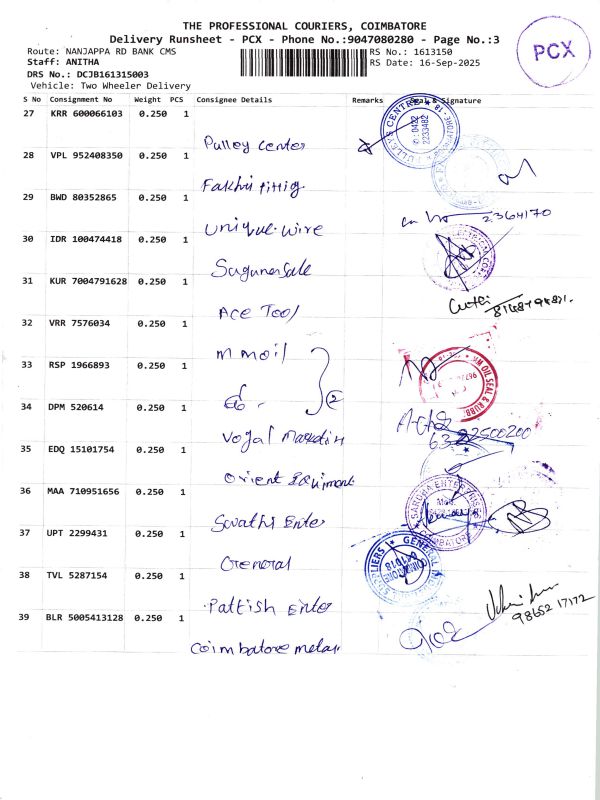 THE PROFESSIONAL COURIERS, COIMBATORE
Delivery Runsheet - PCX - Phone No.:9047080280 - Page No.:3
PCX
Route: NANJAPPA RD BANK CMS
RS No.: 1613150
Staff: ANITHA
RS Date: 16-Sep-2025
DRS No.: DCJB161315003
Vehicle: Two Wheeler Delivery
S No Consignment No Weight PCS Consignee Details Remarks Seal & Signature
27 KRR 600066103 0.250 1
Pulley center
28 VPL 952408350 0.250 1
Fakhri fittig
29 BWD 80352865 0.250 1
unique wire
2364170
30 IDR 100474418 0.250 1
Suguna Sale
31 KUR 7004791628 0.250 1
Ace Tool
32 VRR 7576034 0.250 1
m moil
33 RSP 1966893 0.250 1
34 DPM 520614 0.250 1
6322500200
35 EDQ 15101754 0.250 1
36 MAA 710951656 0.250 1
Swathi Enter
37 UPT 2299431 0.250 1
General
38 TVL 5287154 0.250 1
Pattish Enter
98652 17172
39 BLR 5005413128 0.250 1
Coimbatore metar